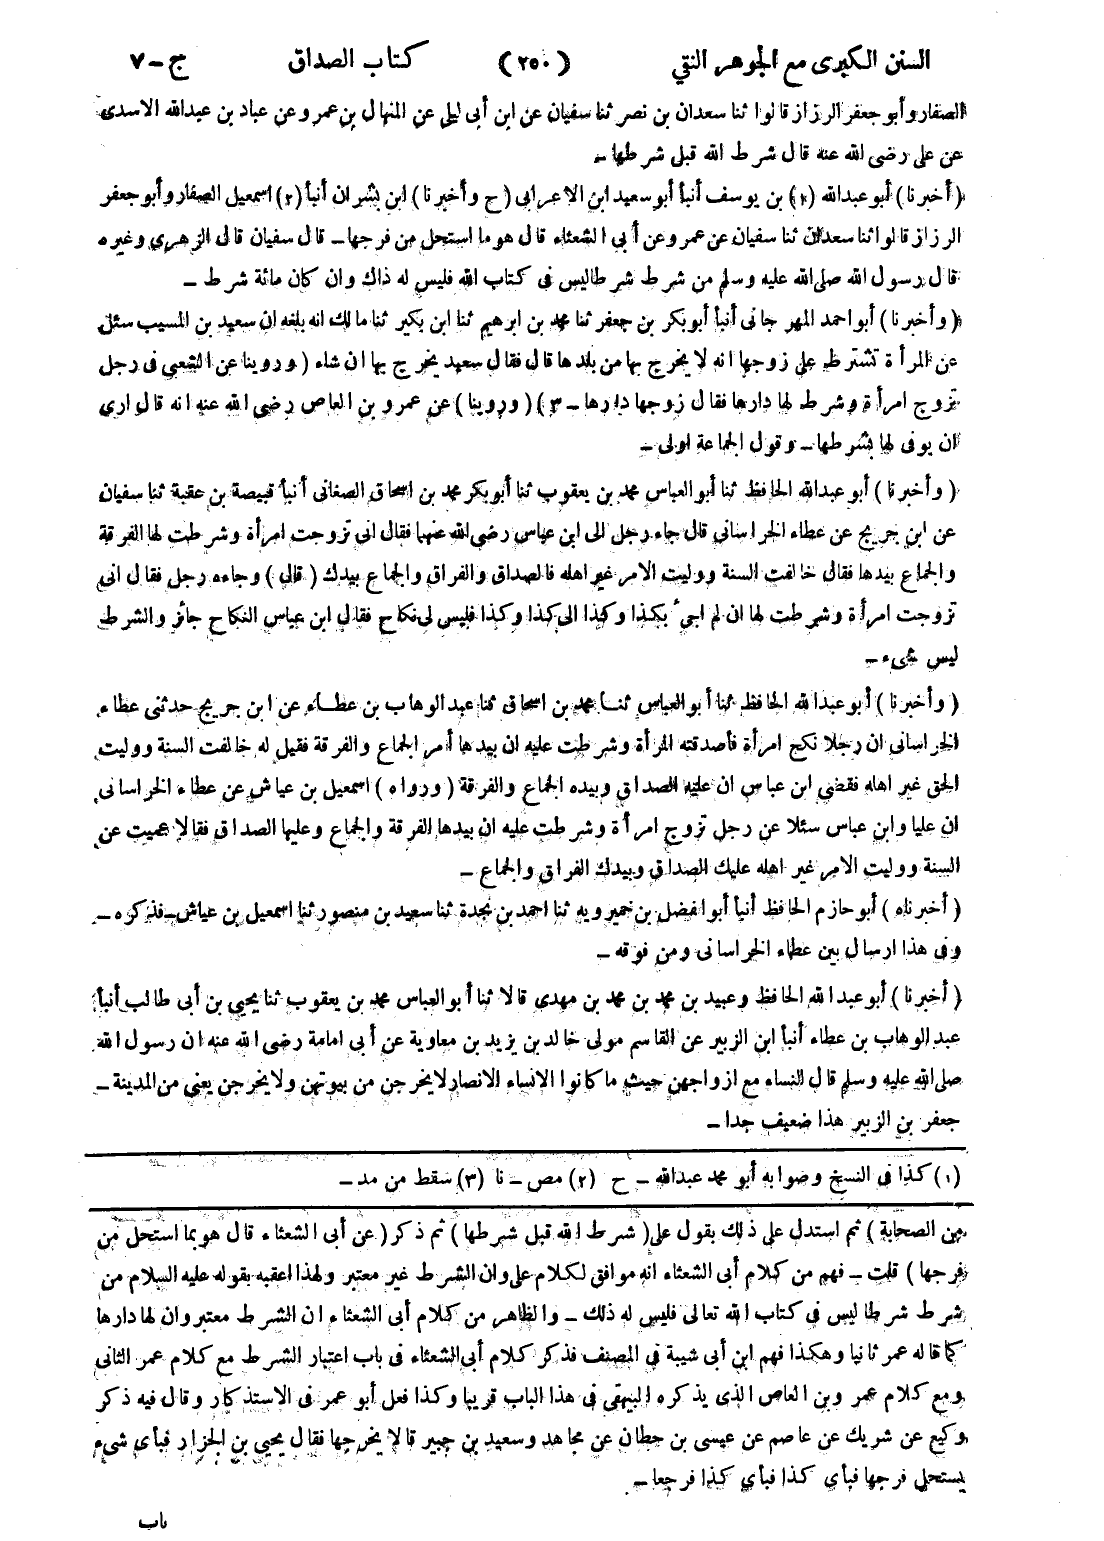 السنن الكبرى مع الجوهر النقي (٢٥٠) كتاب الصداق ج - ٧
الصفار وأبو جعفر الرزاز قالوا ثنا سعدان بن نصر ثنا سفيان عن ابن أبي ليلى عن المنهال بن عمرو عن عباد بن عبدالله الاسدى
عن على رضى الله عنه قال شرط الله قبل شرطها -
(أخبرنا) أبو عبدالله (١) بن يوسف أنبأ أبو سعيد ابن الاعرابى (ح وأخبرنا) ابن بشران أنبأ (٢) اسمعيل الصفار وأبو جعفر
الرزاز قالوا ثنا سعدان ثنا سفيان عن عمرو عن أبى الشعثاء قال هو ما استحل من فرجها - قال سفيان قال الزهري وغيره
قال رسول الله صلى الله عليه وسلم من شرط شرطا ليس فى كتاب الله فليس له ذاك وان كان مائة شرط -
(وأخبرنا) أبو احمد المهرجانى أنبأ أبوبكر بن جعفر ثنا محمد بن ابرهيم ثنا ابن بكير ثنا مالك انه بلغه ان سعيد بن المسيب سئل
عن المرأة تشترط على زوجها انه لا يخرج بها من بلدها قال فقال سعيد يخرج بها ان شاء (وروينا عن الشعبى فى رجل
تزوج امرأة وشرط لها دارها فقال زوجها دارها - ٣) (وروينا) عن عمرو بن العاص رضى الله عنه انه قال ارى
ان يوفى لها بشرطها - وقول الجماعة اولى -
(وأخبرنا) أبو عبدالله الحافظ ثنا أبو العباس محمد بن يعقوب ثنا أبوبكر محمد بن اسحاق الصغانى أنبأ قبيصة بن عقبة ثنا سفيان
عن ابن جريج عن عطاء الخراسانى قال جاء رجل الى ابن عباس رضى الله عنهما فقال انى تزوجت امرأة وشرطت لها الفرقة
والجماع بيدها فقال خالفت السنة ووليت الامر غير اهله فالصداق والفراق والجماع بيدك (قال) وجاءه رجل فقال انى
تزوجت امرأة وشرطت لها ان لم اجئ بكذا وكذا الى كذا وكذا فليس لى نكاح فقال ابن عباس النكاح جائز والشرط
ليس بشىء -
(وأخبرنا) أبو عبدالله الحافظ ثنا أبو العباس ثنا محمد بن اسحاق ثنا عبد الوهاب بن عطاء عن ابن جريج حدثنى عطاء
الخراسانى ان رجلا نكح امرأة فأصدقته المرأة وشرطت عليه ان بيدها أمر الجماع والفرقة فقيل له خالفت السنة ووليت
الحق غير اهله فقضى ابن عباس ان عليه الصداق وبيده الجماع والفرقة (ورواه) اسمعيل بن عياش عن عطاء الخراسانى
ان عليا وابن عباس سئلا عن رجل تزوج امرأة وشرطت عليه ان بيدها الفرقة والجماع وعليها الصداق فقالا عميت عن
السنة ووليت الامر غير اهله عليك الصداق وبيدك الفراق والجماع -
(أخبرناه) أبو حازم الحافظ أنبأ أبو الفضل بن خميرويه ثنا احمد بن نجدة ثنا سعيد بن منصور ثنا اسمعيل بن عياش - فذكره -
وفى هذا ارسال بين عطاء الخراسانى ومن فوقه -
(أخبرنا) أبو عبد الله الحافظ وعبيد بن محمد بن محمد بن مهدى قالا ثنا أبو العباس محمد بن يعقوب ثنا يحيى بن أبى طالب أنبأ
عبد الوهاب بن عطاء أنبأ ابن الزبير عن القاسم مولى خالد بن يزيد بن معاوية عن أبى امامة رضى الله عنه ان رسول الله
صلى الله عليه وسلم قال النساء مع ازواجهن حيث ما كانوا الانساء الانصار لا يخرجن من بيوتهن ولا يخرجن يعنى من المدينة -
جعفر بن الزبير هذا ضعيف جدا -
(١) كذا فى النسخ وصوابه أبو محمد عبدالله - ح (٢) مص - نا (٣) سقط من مد -
من الصحابة) ثم استدل على ذلك بقول على (شرط الله قبل شرطها) ثم ذكر (عن أبى الشعثاء قال هو بما استحل من
فرجها) قلت - فهم من كلام أبى الشعثاء انه موافق لكلام على وان الشرط غير معتبر ولهذا اعقبه بقوله عليه السلام من
شرط شرطا ليس فى كتاب الله تعالى فليس له ذلك - والظاهر من كلام أبى الشعثاء ان الشرط معتبر وان لها دارها
كما قاله عمر ثانيا وهكذا فهم ابن أبى شيبة فى المصنف فذكر كلام أبى الشعثاء فى باب اعتبار الشرط مع كلام عمر الثانى
ومع كلام عمرو بن العاص الذى يذكره البيهقى فى هذا الباب قريبا وكذا فعل أبو عمر فى الاستذكار وقال فيه ذكر
وكيع عن شريك عن عاصم عن عيسى بن حطان عن مجاهد وسعيد بن جبير قالا يخرجها فقال يحيى بن الجزار فبأى شىء
يستحل فرجها فبأى كذا فبأى كذا فرجعا -
باب